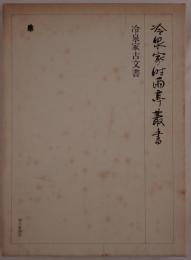 冷泉家時雨亭叢書
冷泉家古文書